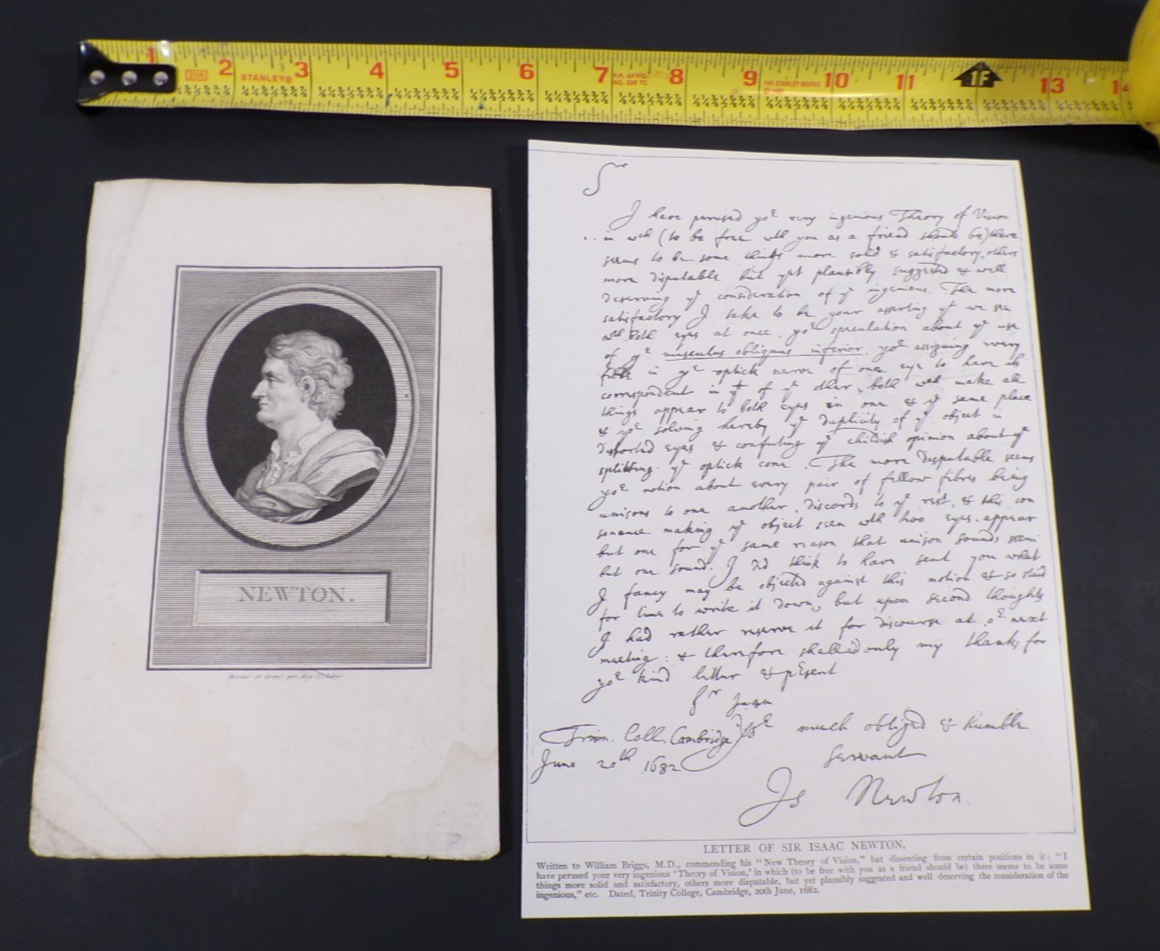 1 2 3 4 5 6 7 8 9 10 11 1F 13 14
25ft STANLEY®
NEWTON.
Sr
I have perused yor very ingenious Theory of Vision
in wch (to be free wth you as a friend should be) there
seems to be some things more solid & satisfactory, others
more disputable but yet plausibly suggested & well
deserving ye consideration of ye ingenious. The more
satisfactory I take to be your asserting yt we see
wth both eyes at once, yor speculation about ye use
of ye musculus obliquus inferior, yor assigning every
fibre in ye optick nerve of one eye to have its
correspondent in yt of ye other, both wch make all
things appear to both eyes in one & ye same place
& yor solving hereby ye duplicity of ye object in
distorted eyes & confuting ye childish opinion about ye
splitting ye optick cone. The more disputable seems
yor notion about every pair of fellow fibres being
unisons to one another, discords to ye rest, & this con
sonance making ye object seen wth two eyes appear
but one for ye same reason that unison sounds seem
but one sound. I did think to have sent you what
I fancy may be objected against this notion & so staid
for time to write it down, but upon second thoughts
I had rather reserve it for discourse at or next
meeting: & therefore shall add only my thanks for
yor kind letter & present
Sr I am
Trin. Coll. Cambridge } Yor much obliged & humble
June 20th 1682 Servant
Is Newton.
LETTER OF SIR ISAAC NEWTON,
Written to William Briggs, M.D., commending his "New Theory of Vision," but dissenting from certain positions in it: "I
have perused your very ingenious 'Theory of Vision,' in which (to be free with you as a friend should be) there seems to be some
things more solid and satisfactory, others more disputable, but yet plausibly suggested and well deserving the consideration of the
ingenious," etc. Dated, Trinity College, Cambridge, 20th June, 1682.